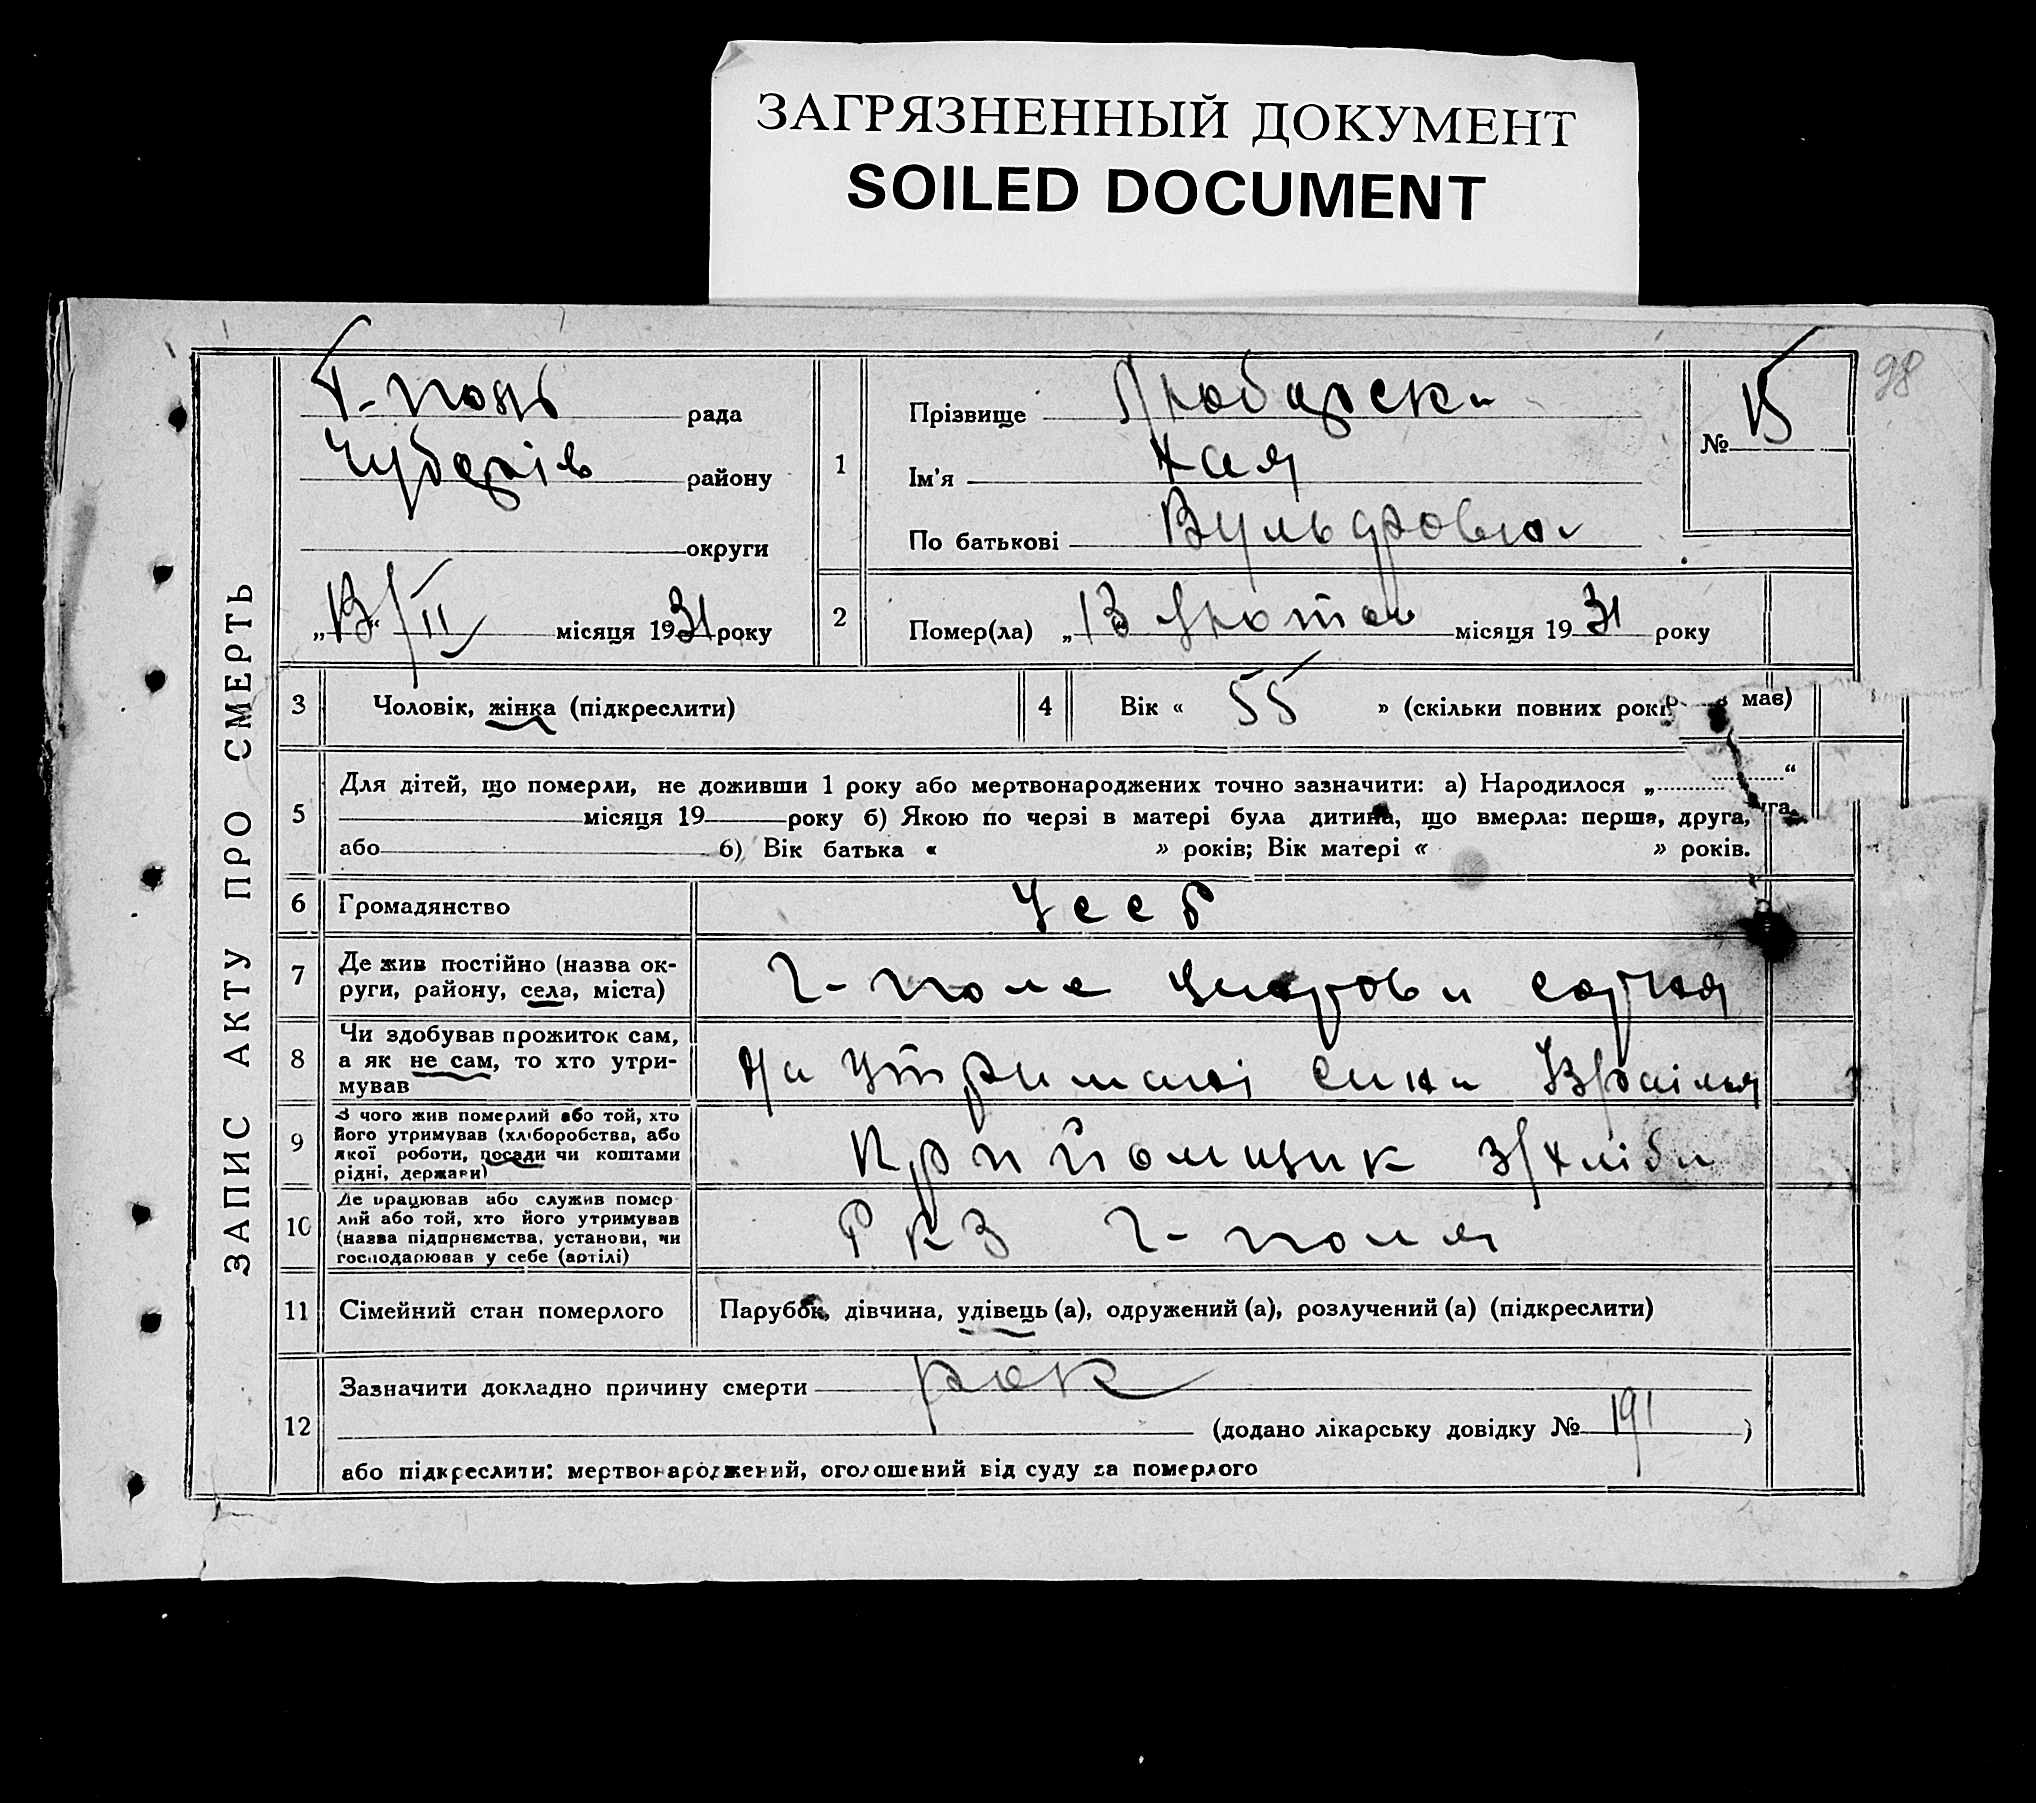 ЗАГРЯЗНЕННЫЙ ДОКУМЕНТ
SOILED DOCUMENT
98
ЗАПИС АКТУ ПРО СМЕРТЬ
рада
району
округи
місяця 1931 року
1
Прізвище
Ім'я Хая
По батькові
№ 15
2
Помер(ла) „13 лютого місяця 1931 року
3 Чоловік, жінка (підкреслити)
4 Вік « 55 » (скільки повних років має)
5 Для дітей, що померли, не доживши 1 року або мертвонароджених точно зазначити: а) Народилося „ “
місяця 19 року б) Якою по черзі в матері була дитина, що вмерла: перша, друга,
або б) Вік батька « » років; Вік матері « » років.
6 Громадянство Усср
7 Де жив постійно (назва ок-
руги, району, села, міста)
Г-поле
8 Чи здобував прожиток сам,
а як не сам, то хто утри-
мував
На утримані сина Ізраіля
9 З чого жив померлий або той, хто
його утримував (хліборобства, або
якої роботи, посади чи коштами
рідні, держави)
Прийомщик з/хліба
10 Де працював або служив помер
лий або той, хто його утримував
(назва підприємства, установи, чи
господарював у себе (артілі)
Р К З Г-поля
11 Сімейний стан померлого Парубок, дівчина, удівець (а), одружений (а), розлучений (а) (підкреслити)
12 Зазначити докладно причину смерти рак
(додано лікарську довідку № 191 )
або підкреслити: мертвонароджений, оголошений від суду за померлого